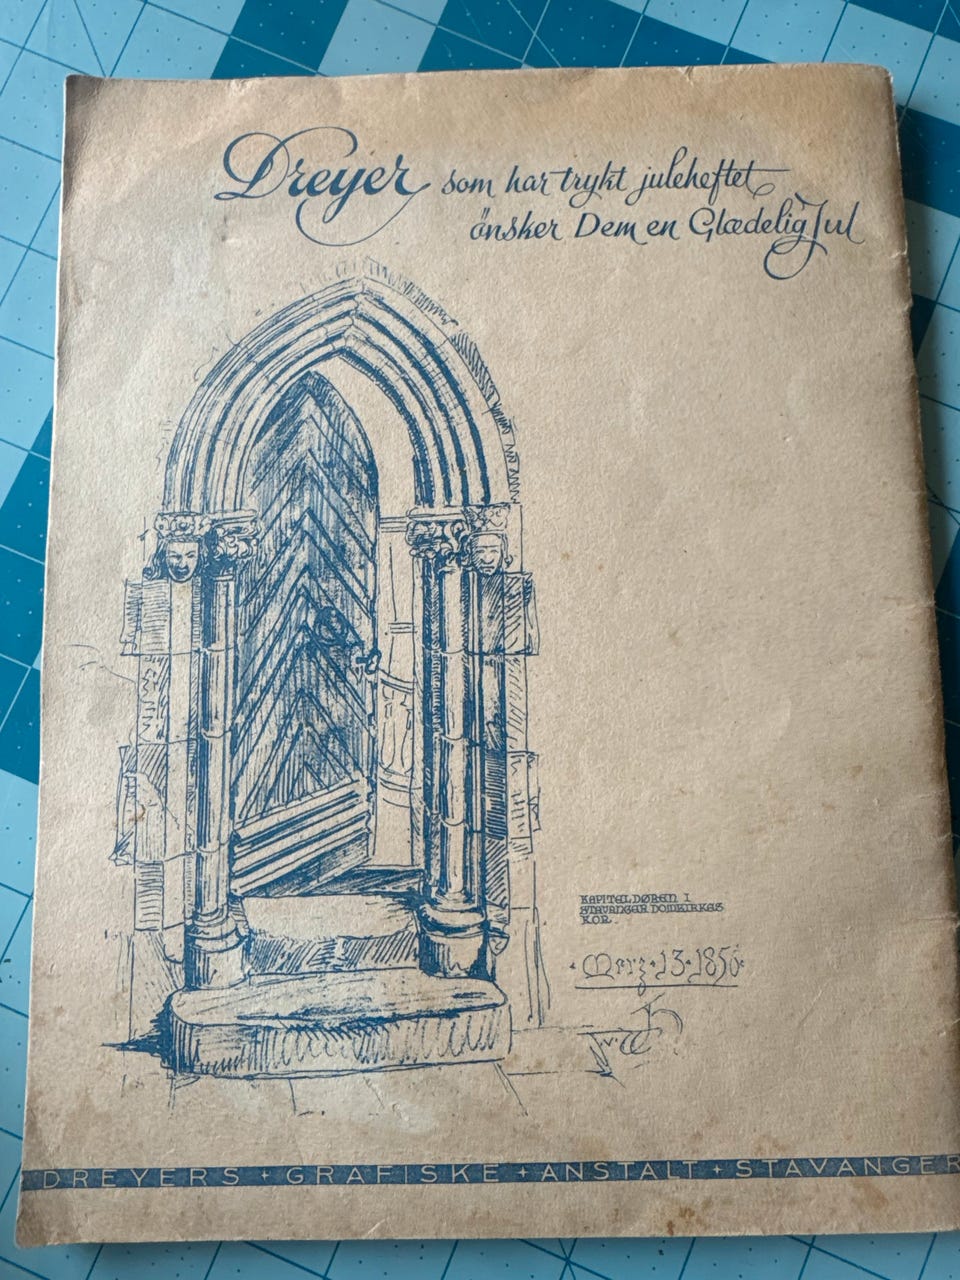 Dreyer som har trykt juleheftet
ønsker Dem en Glædelig Jul
KAPITELDØREN I
STAVANGER DOMKIRKES
KOR.
Merz·13·1856·
DREYERS + GRAFISKE + ANSTALT + STAVANGER